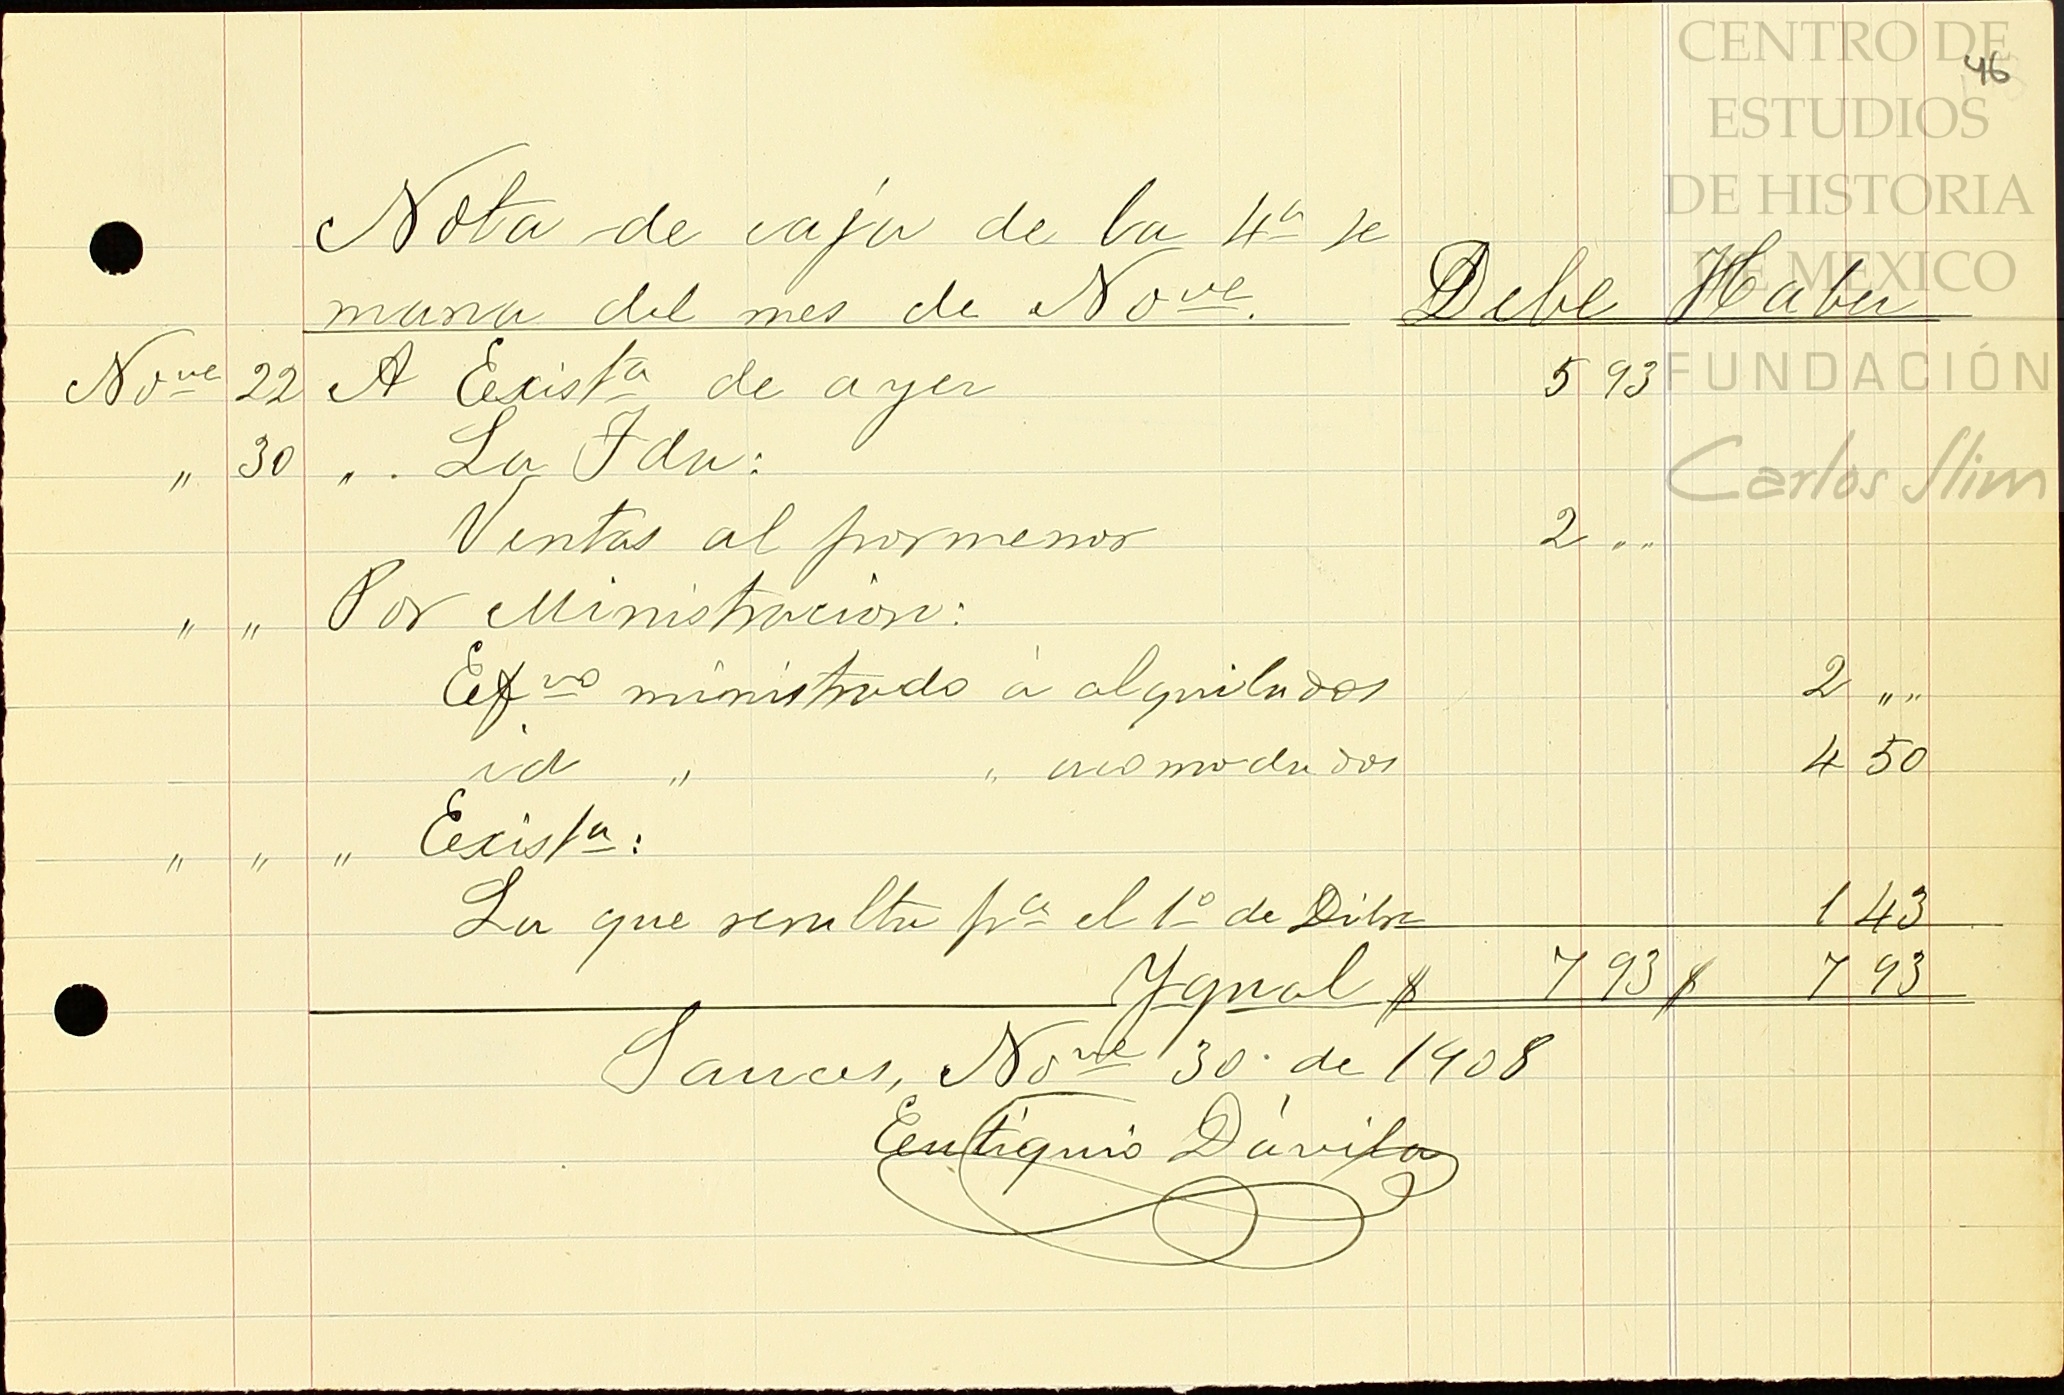 46
Nota de caja de la 4ª se
mana del mes de Nove. Debe Haber
Nove 22 A Existª de ayer 5 93
" 30 " . La Fda:
Ventas al pormenor 2 ""
" " Por Ministracion:
Efvo ministrado á alquilados 2 ""
id " " acomodados 4 50
" " " Existª:
La que resulta pª el 1º de Dibre 1 43
Ygual $ 7 93 $ 7 93
Sauces, Nove 30 de 1908
Eutiquio Dávila
CENTRO DE
ESTUDIOS
DE HISTORIA
DE MEXICO
FUNDACIÓN
Carlos Slim